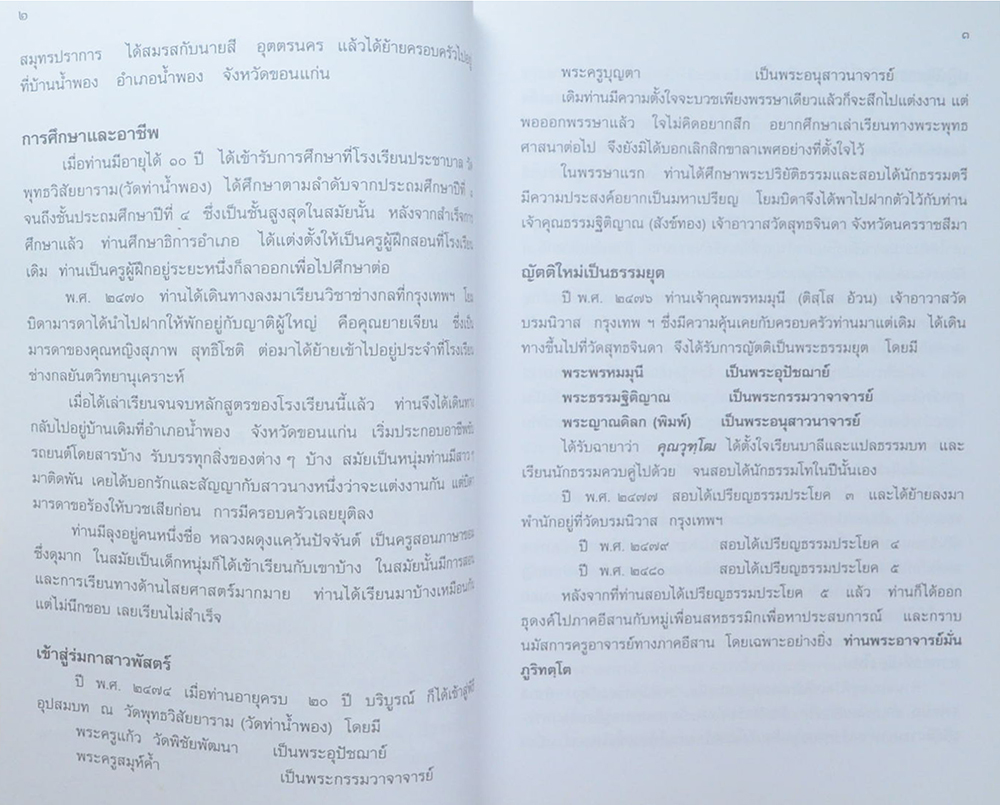 ๒
สมุทรปราการ ได้สมรสกับนายสี อุตตรนคร แล้วได้ย้ายครอบครัวไปอยู่
ที่บ้านน้ำพอง อำเภอน้ำพอง จังหวัดขอนแก่น
การศึกษาและอาชีพ
เมื่อท่านมีอายุได้ ๑๐ ปี ได้เข้ารับการศึกษาที่โรงเรียนประชาบาล
พุทธวิสัยยาราม(วัดท่าน้ำพอง) ได้ศึกษาตามลำดับจากประถมศึกษาปีที่ ๑
จนถึงชั้นประถมศึกษาปีที่ ๔ ซึ่งเป็นชั้นสูงสุดในสมัยนั้น หลังจากสำเร็จการ
ศึกษาแล้ว ท่านศึกษาธิการอำเภอ ได้แต่งตั้งให้เป็นครูผู้ฝึกสอนที่โรงเรียน
เดิม ท่านเป็นครูผู้ฝึกอยู่ระยะหนึ่งก็ลาออกเพื่อไปศึกษาต่อ
พ.ศ. ๒๔๗๐ ท่านได้เดินทางลงมาเรียนวิชาช่างกลที่กรุงเทพฯ โดย
บิดามารดาได้นำไปฝากให้พักอยู่กับญาติผู้ใหญ่ คือคุณยายเจียน ซึ่งเป็น
มารดาของคุณหญิงสุภาพ สุทธิโชติ ต่อมาได้ย้ายเข้าไปอยู่ประจำที่โรงเรียน
ช่างกลยันตวิทยานุเคราะห์
เมื่อได้เล่าเรียนจนจบหลักสูตรของโรงเรียนนี้แล้ว ท่านจึงได้เดินทาง
กลับไปอยู่บ้านเดิมที่อำเภอน้ำพอง จังหวัดขอนแก่น เริ่มประกอบอาชีพขับ
รถยนต์โดยสารบ้าง รับบรรทุกสิ่งของต่าง ๆ บ้าง สมัยเป็นหนุ่มท่านมีสาวๆ
มาติดพัน เคยได้บอกรักและสัญญากับสาวนางหนึ่งว่าจะแต่งงานกัน แต่บิดา
มารดาขอร้องให้บวชเสียก่อน การมีครอบครัวเลยยุติลง
ท่านมีลุงอยู่คนหนึ่งชื่อ หลวงผดุงแคว้นปัจจันต์ เป็นครูสอนภาษาขอม
ซึ่งดุมาก ในสมัยเป็นเด็กหนุ่มก็ได้เข้าเรียนกับเขาบ้าง ในสมัยนั้นมีการสอน
และการเรียนทางด้านไสยศาสตร์มากมาย ท่านได้เรียนมาบ้างเหมือนกัน
แต่ไม่นึกชอบ เลยเรียนไม่สำเร็จ
เข้าสู่ร่มกาสาวพัสตร์
ปี พ.ศ. ๒๔๗๔ เมื่อท่านอายุครบ ๒๐ ปี บริบูรณ์ ก็ได้เข้าสู่พิธี
อุปสมบท ณ วัดพุทธวิสัยยาราม (วัดท่าน้ำพอง) โดยมี
พระครูแก้ว วัดพิชัยพัฒนา เป็นพระอุปัชฌาย์
พระครูสมุห์ค้ำ เป็นพระกรรมวาจาจารย์
๓
พระครูบุญตา เป็นพระอนุสาวนาจารย์
เดิมท่านมีความตั้งใจจะบวชเพียงพรรษาเดียวแล้วก็จะสึกไปแต่งงาน แต่
พอออกพรรษาแล้ว ใจไม่คิดอยากสึก อยากศึกษาเล่าเรียนทางพระพุทธ
ศาสนาต่อไป จึงยังมิได้บอกเลิกสิกขาลาเพศอย่างที่ตั้งใจไว้
ในพรรษาแรก ท่านได้ศึกษาพระปริยัติธรรมและสอบได้นักธรรมตรี
มีความประสงค์อยากเป็นมหาเปรียญ โยมบิดาจึงได้พาไปฝากตัวไว้กับท่าน
เจ้าคุณธรรมฐิติญาณ (สังข์ทอง) เจ้าอาวาสวัดสุทธจินดา จังหวัดนครราชสีมา
ญัตติใหม่เป็นธรรมยุต
ปี พ.ศ. ๒๔๗๖ ท่านเจ้าคุณพรหมมุนี (ติสฺโส อ้วน) เจ้าอาวาสวัด
บรมนิวาส กรุงเทพ ฯ ซึ่งมีความคุ้นเคยกับครอบครัวท่านมาแต่เดิม ได้เดิน
ทางขึ้นไปที่วัดสุทธจินดา จึงได้รับการญัตติเป็นพระธรรมยุต โดยมี
พระพรหมมุนี เป็นพระอุปัชฌาย์
พระธรรมฐิติญาณ เป็นพระกรรมวาจาจารย์
พระญาณดิลก (พิมพ์) เป็นพระอนุสาวนาจารย์
ได้รับฉายาว่า คุณวุฑฺโฒ ได้ตั้งใจเรียนบาลีและแปลธรรมบท และ
เรียนนักธรรมควบคู่ไปด้วย จนสอบได้นักธรรมโทในปีนั้นเอง
ปี พ.ศ. ๒๔๗๗ สอบได้เปรียญธรรมประโยค ๓ และได้ย้ายลงมา
พำนักอยู่ที่วัดบรมนิวาส กรุงเทพฯ
ปี พ.ศ. ๒๔๗๙ สอบได้เปรียญธรรมประโยค ๔
ปี พ.ศ. ๒๔๘๐ สอบได้เปรียญธรรมประโยค ๕
หลังจากที่ท่านสอบได้เปรียญธรรมประโยค ๕ แล้ว ท่านก็ได้ออก
ธุดงค์ไปภาคอีสานกับหมู่เพื่อนสหธรรมิกเพื่อหาประสบการณ์ และกราบ
นมัสการครูอาจารย์ทางภาคอีสาน โดยเฉพาะอย่างยิ่ง ท่านพระอาจารย์มั่น
ภูริทตฺโต